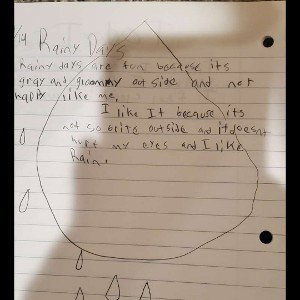 /14 Rainy Days
rainy days are fun because its
gray and gloommy out side and not
happy like me.
I like It because its
not so brite outside and it doesent
hurt my eyes and I like
Rain.